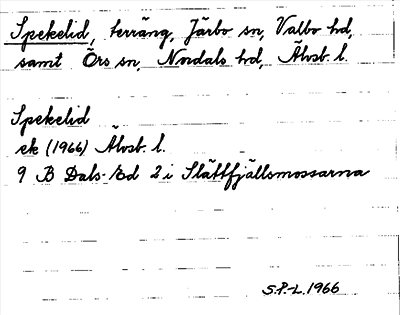 Spekelid, terräng, Järbo sn, Valbo hd,
samt Örs sn, Nordals hd, Älvsb. l.
Spekelid
ek (1966) Älvsb. l.
9 B Dals-Ed 2 i Slättfjällsmossarna
S.P-L. 1966